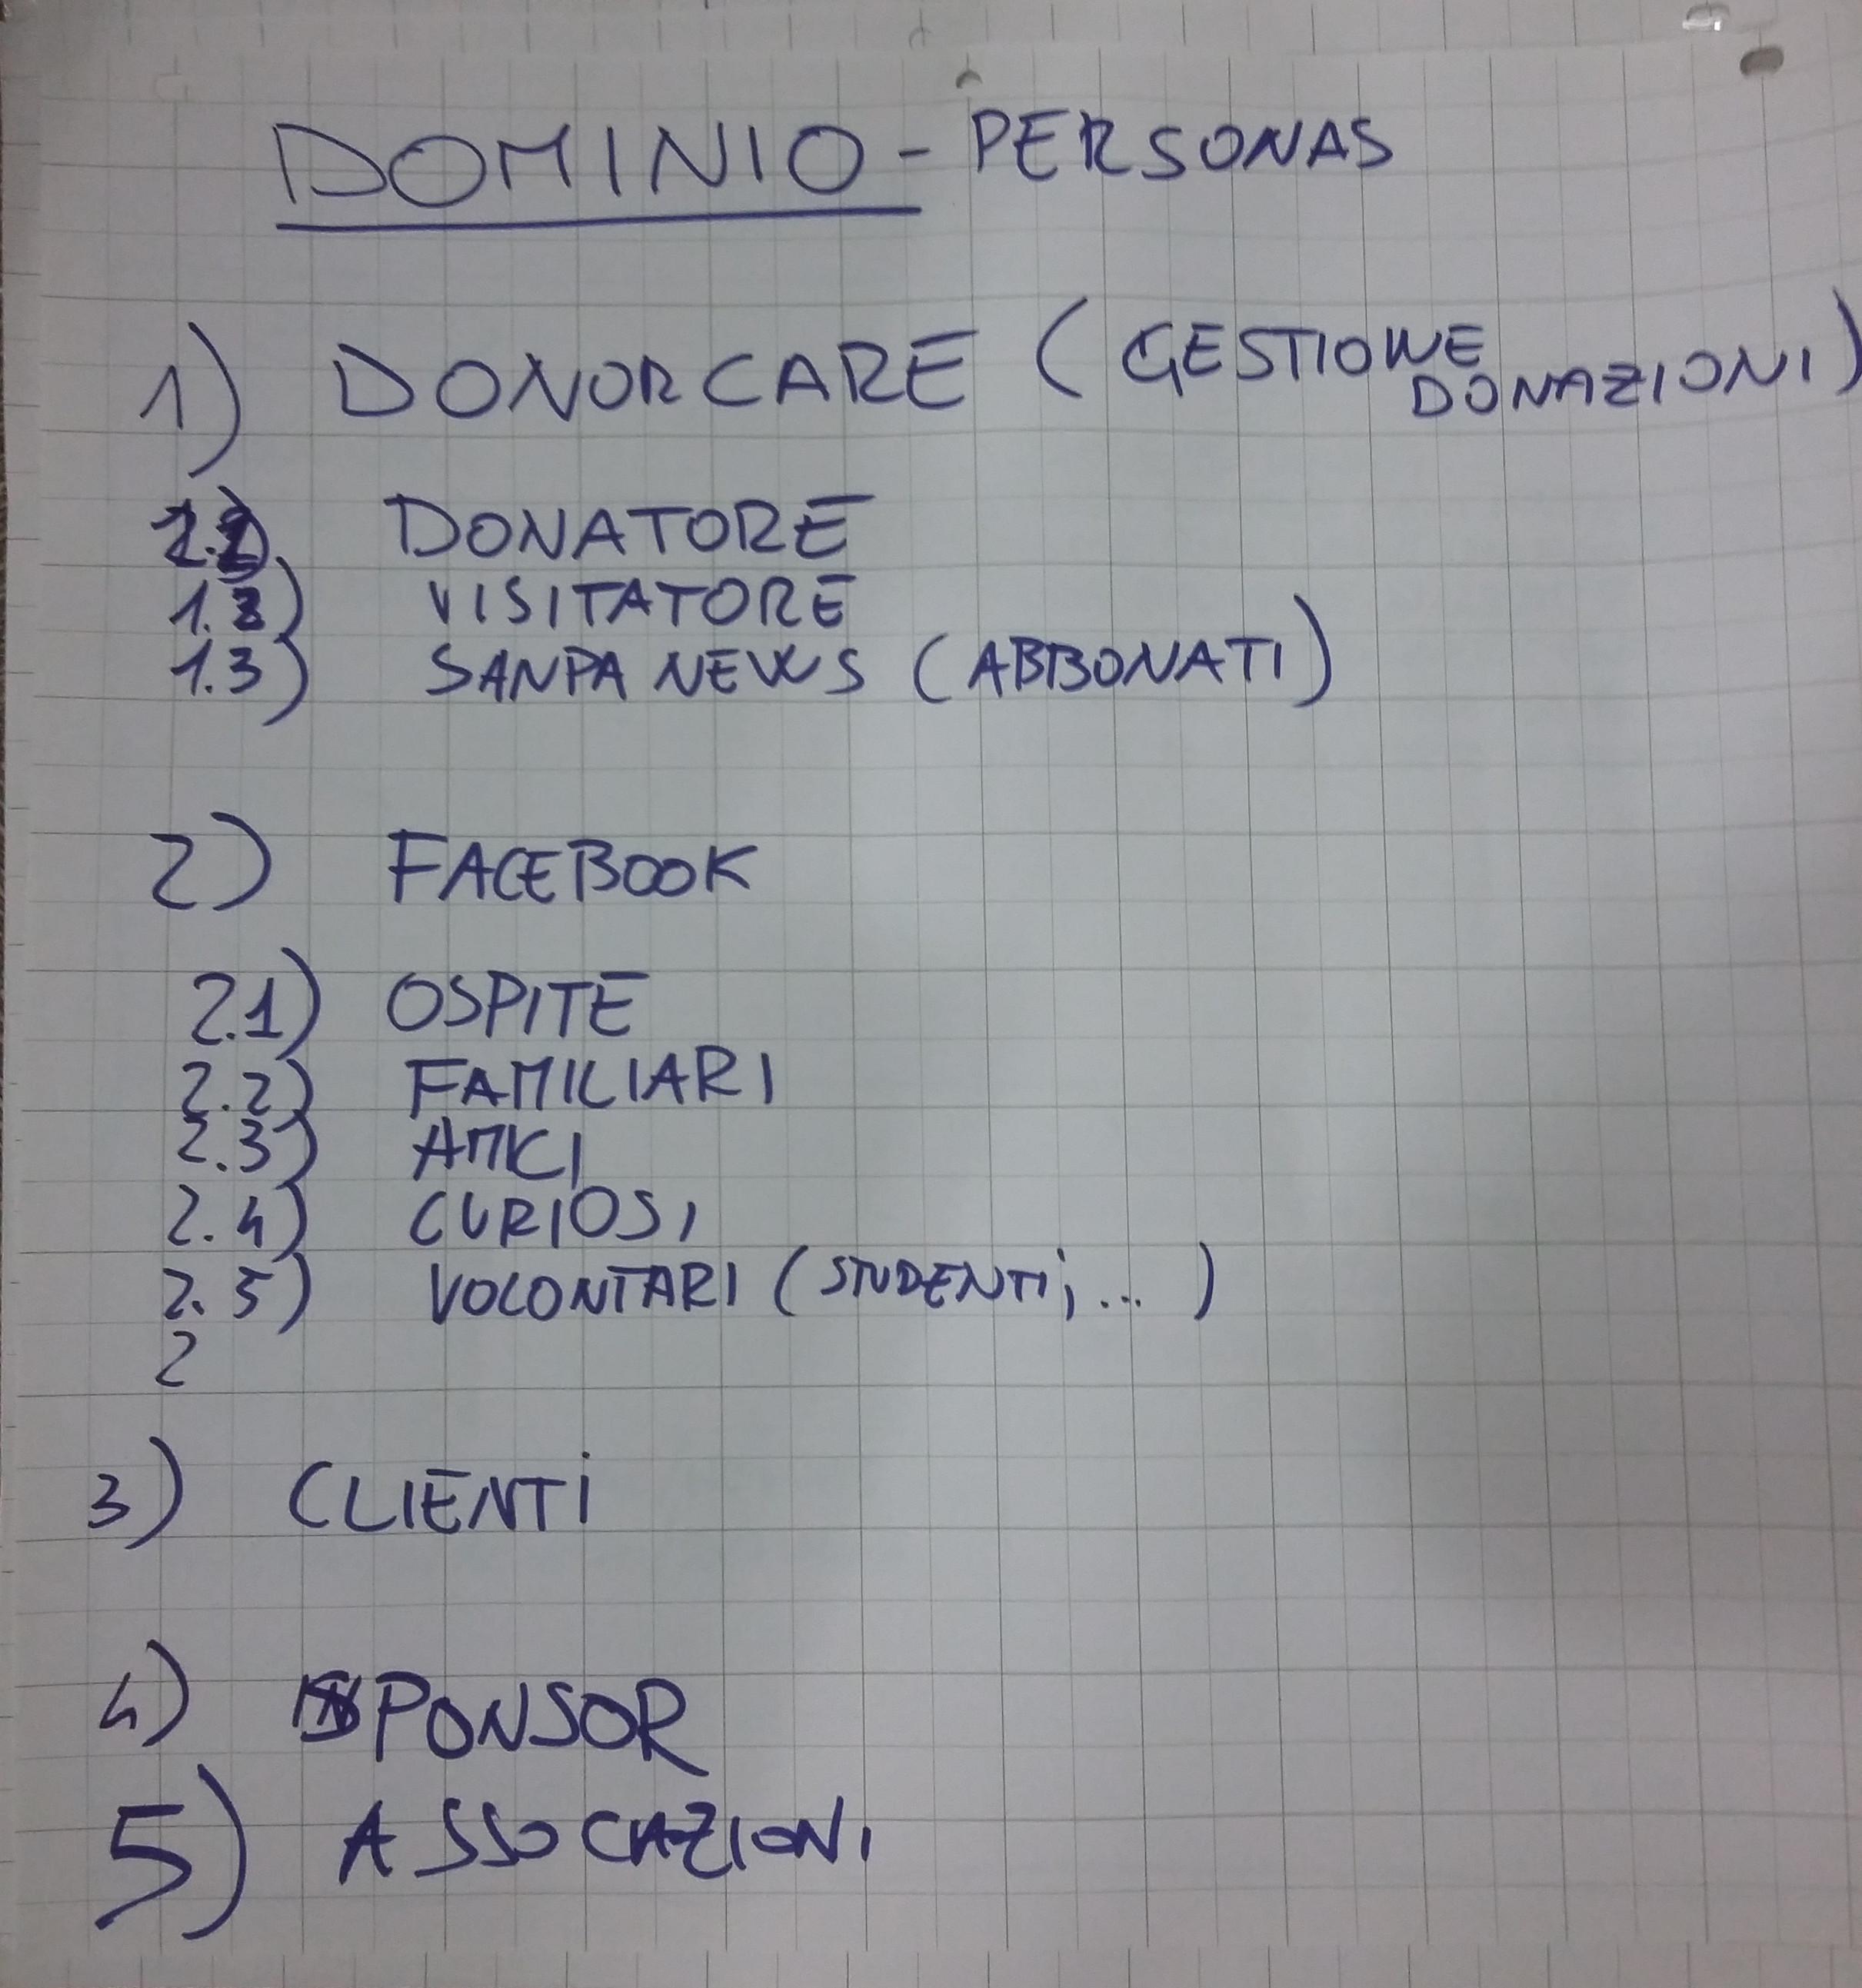 DOMINIO - PERSONAS
1) DONORCARE (GESTIONE
DONAZIONI)
DONATORE
1.2) VISITATORE
1.3) SANPA NEWS (ABBONATI)
2) FACEBOOK
2.1) OSPITE
2.2) FAMILIARI
2.3) AMICI
2.4) CURIOSI
2.5) VOLONTARI (STUDENTI, ...)
2
3) CLIENTI
4) SPONSOR
5) ASSOCIAZIONI